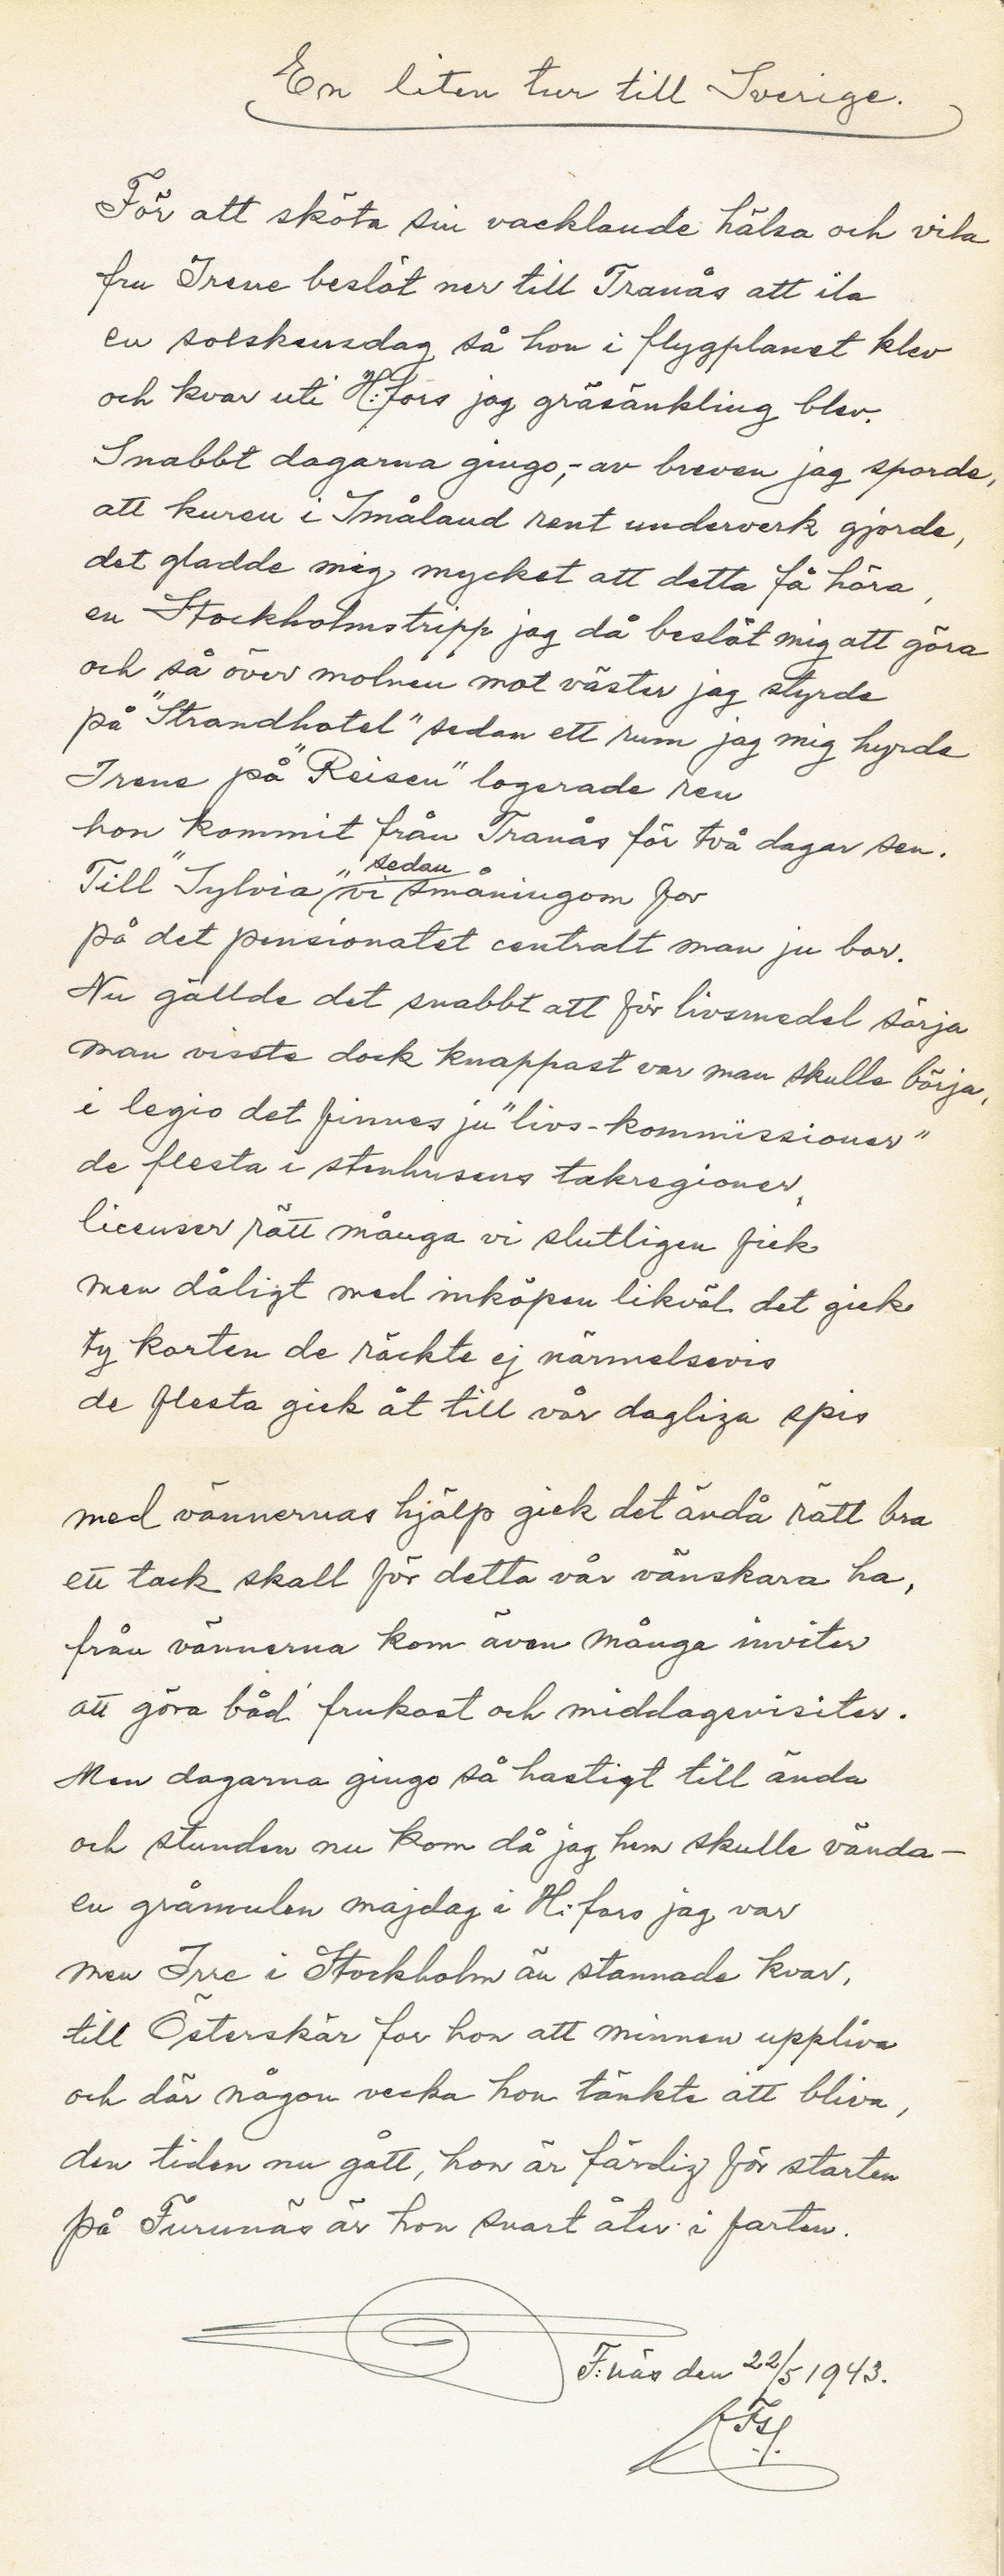 En liten tur till Sverige.
För att sköta sin vacklande hälsa och vila
fru Irene beslöt ner till Tranås att ila
en solskensdag så hon i flygplanet klev
och kvar uti H:fors jag gräsänkling blev.
Snabbt dagarna gingo,- av breven jag sporde,
att kuren i Småland rent underverk gjorde,
det gladde mig mycket att detta få höra,
en Stockholmstripp jag då beslöt mig att göra
och så över molnen mot väster jag styrde
på "Strandhotel" sedan ett rum jag mig hyrde
Irene på "Reisen" logerade ren
hon kommit från Tranås för två dagar sen.
Till "Sylvia" vi sedan småningom for
på det pensionatet centralt man ju bor.
Nu gällde det snabbt att för livsmedel sörja
man visste dock knappast var man skulle börja,
i legio det finnes ju "livs-kommissioner"
de flesta i stenhusens takregioner,
licenser rätt många vi slutligen fick
men dåligt med inköpen likväl det gick
ty korten de räckte ej närmelsevis
de flesta gick åt till vår dagliga spis
med vännernas hjälp gick det ändå rätt bra
ett tack skall för detta vår vänskara ha,
från vännerna kom även många inviter
att göra båd' frukost och middagsvisiter.
Men dagarna gingo så hastigt till ända
och stunden nu kom då jag hem skulle vända-
en gråmulen majdag i H:fors jag var
men Irre i Stockholm än stannade kvar,
till Österskär for hon att minnen uppliva
och där någon vecka hon tänkte att bliva,
den tiden nu gått, hon är färdig för starten
på Furunäs är hon snart åter i farten.
F:näs den 22/5 1943.